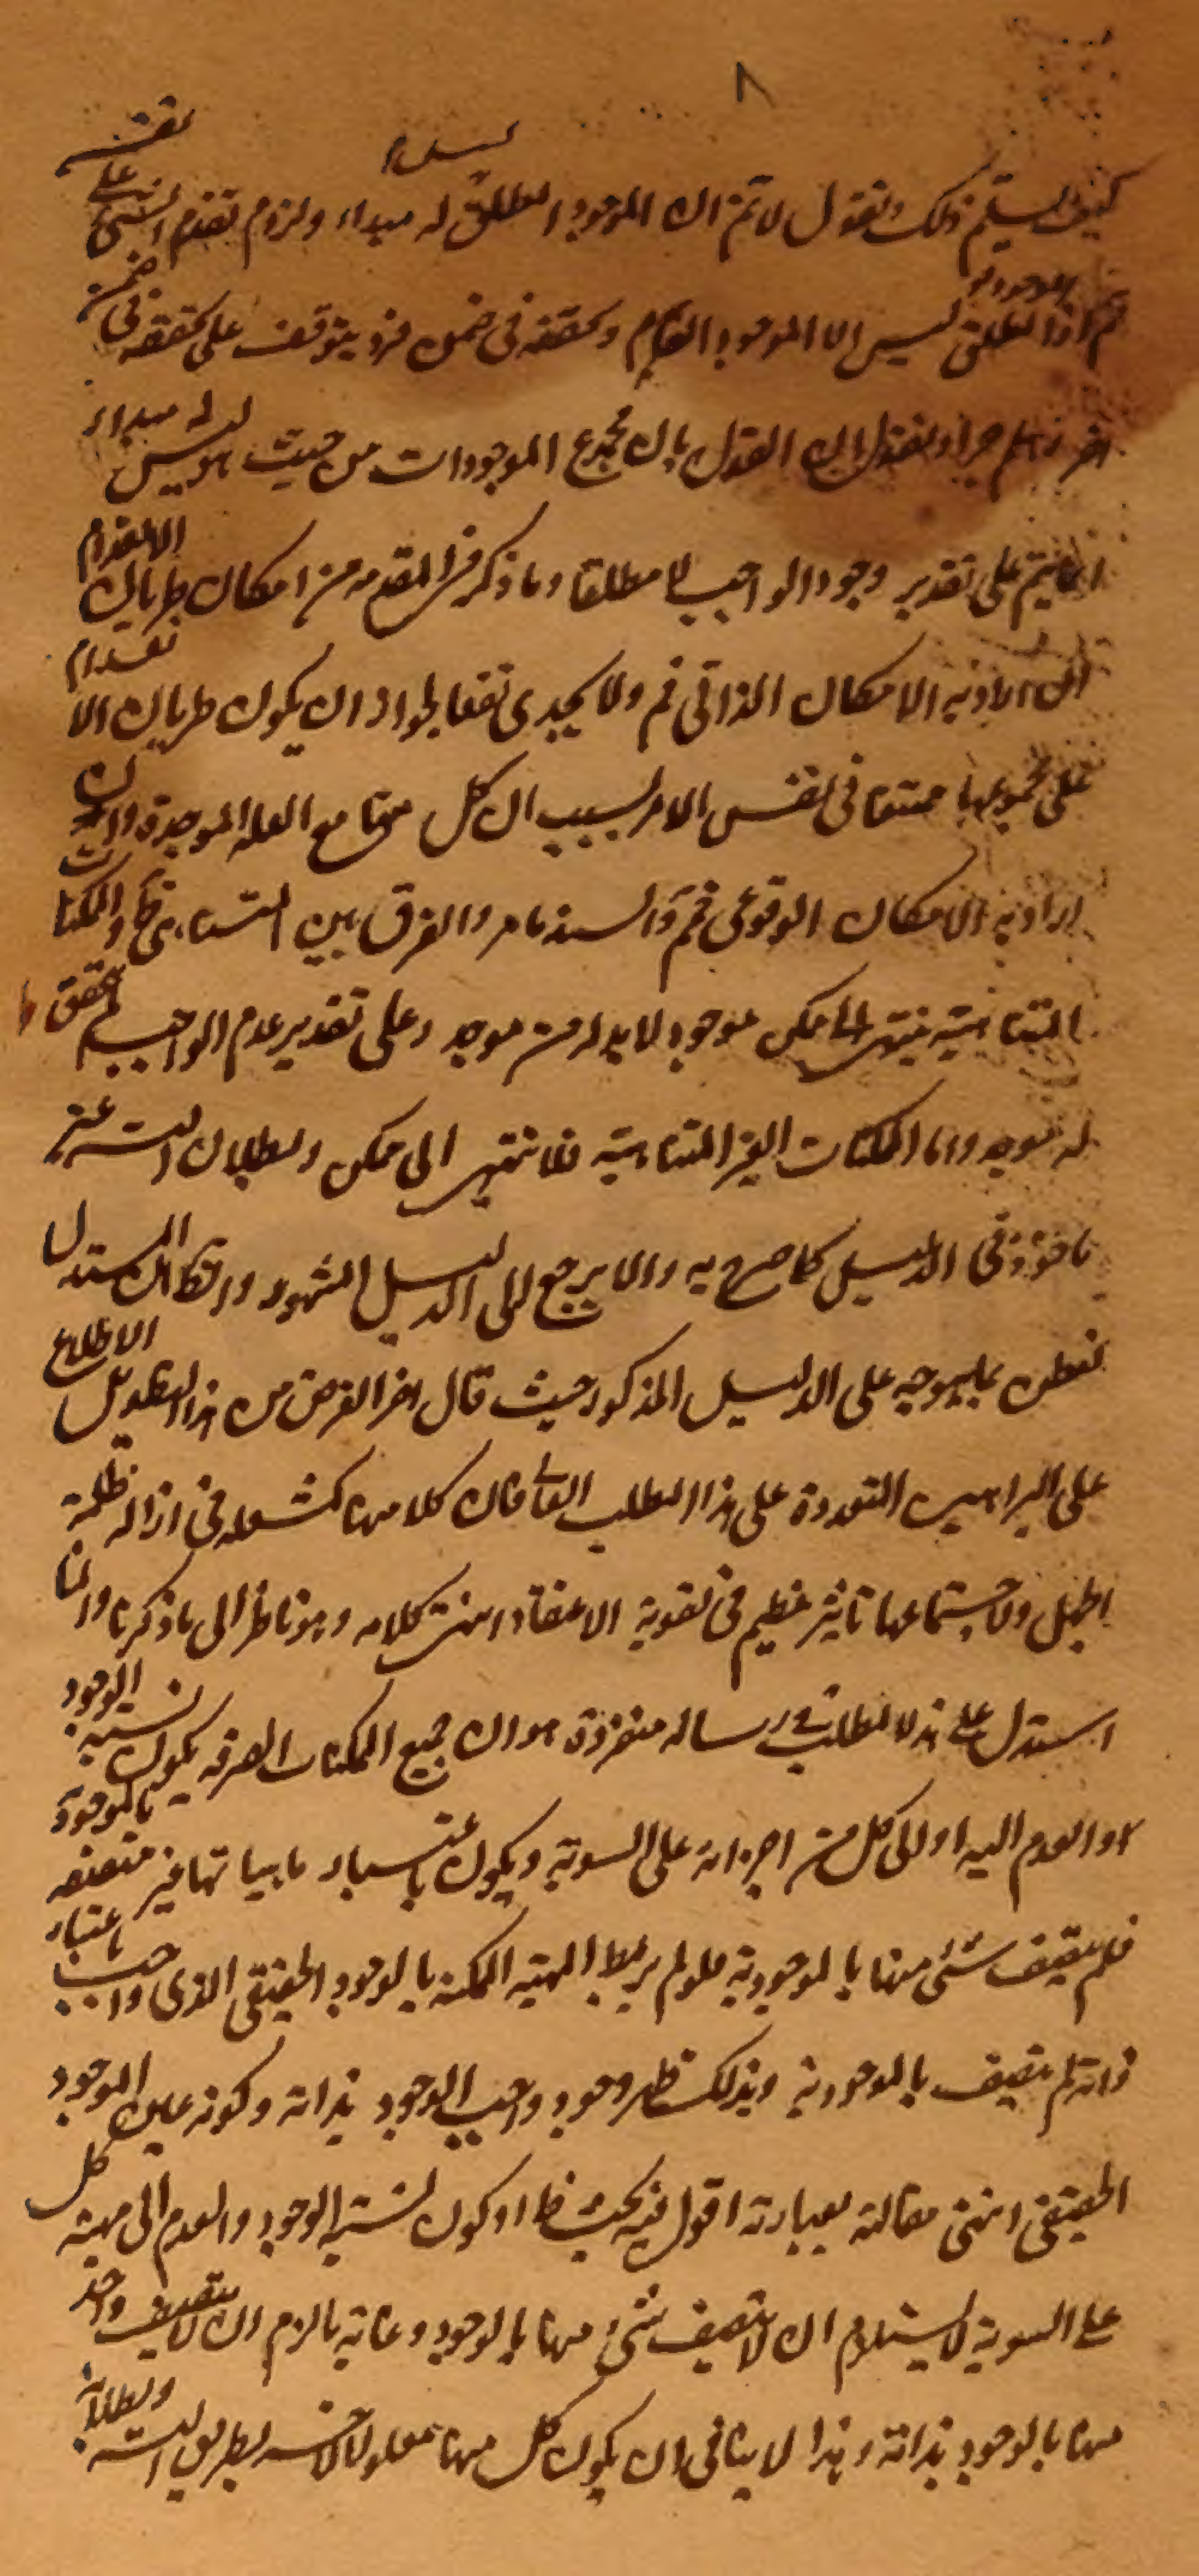 ٨
كيف يسلم ذلك ونقول لا تم ان الموجود المطلق ليس له مبداء ولزوم تقدم الشئ على نفسه
ثم اذ الموجود المطلق ليس الا الموجود العام وتحققه فى ضمن فرد يتوقف على تحققه فى ضمن
اخر وهلم جرا ونقول ان القول بان مجموع الموجودات من حيث هو ليس له مبداء
انما يتم على تقدير وجود الواجب لا مطلقا وما ذكر فى المقدمه من امكان طريان الانعدام
ان اراد به الامكان الذاتى فم ولا يجدى نفعا لجواز ان يكون طريان الانعدام
على مجموعها ممتنعا فى نفس الامر بسبب ان كل منها مع العله الموجدة وان
اراد به الامكان الوقوعى فمم والسند ما مر والفرق بين الممكنات
المتناهية ينتهى الى ممكن موجود لا بد له من موجد وعلى تقدير عدم الواجب لم يتحقق
له موجد واما الممكنات الغير المتناهية فلا تنتهى الى ممكن وبطلان التس غير
ماخوذ فى الدليل كما صرح به والا يرجع الى الدليل المشهور والظ ان المستدل
تفطن بما يتوجه على الدليل المذكور حيث قال اخر الغرض من هذا التطويل الاطلاع
على البراهين المتعددة على هذا المطلب العالى فان كلا منها كشعله فى ازاله ظلمة
الجهل ولاجتماعها تاثير عظيم فى تقوية الاعتقاد انتهى كلامه وهو ناظر الى ما ذكرنا
استدل على هذا المطلب فى رساله منفردة هو ان جميع الممكنات الصرفه يكون نسبة الوجود
او العدم اليه او الى كل من اجزائه على السوية ويكون باعتبار ماهياتها غير متصفه بالموجودية
فلم يتصف شئ منها بالموجودية فلو لم يرتبط المهية الممكنه بالوجود الحقيقى الذى واجب باعتبار
ذاته لم يتصف بالموجودية وبذلك ظهر وجود واجب الوجود بذاته وكونه عين الوجود
الحقيقى انتهى مقالته بعبارته اقول فيه بحث ظ اذ كون نسبة الوجود والعدم الى مهية كل
على السوية لا يستلزم ان لا يتصف شئ منها بالوجود وغاية ما لزم ان لا يتصف واحد
منها بالوجود بذاته وهذا لا ينافى ان يكون كل منها معلولا لاخر بطريق التس وبطلانه